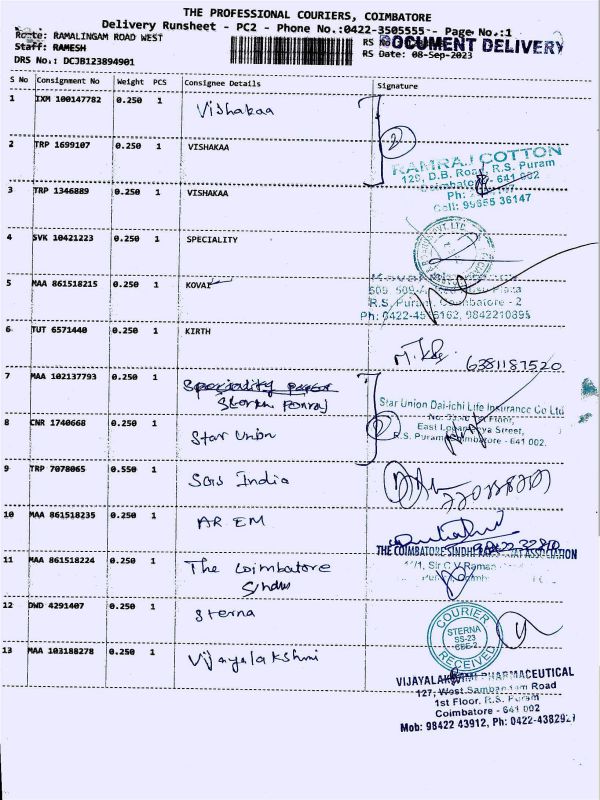 THE PROFESSIONAL COURIERS, COIMBATORE
Delivery Runsheet - PC2 - Phone No.:0422-3505555 - Page No.:1
Route: RAMALINGAM ROAD WEST
RS No
DOCUMENT DELIVERY
Staff: RAMESH
RS Date: 08-Sep-2023
DRS No.: DCJB123894901
S No Consignment No Weight PCS Consignee Details Signature
1 IXM 100147782 0.250 1 Vishakaa
2
2 TRP 1699107 0.250 1 VISHAKAA
RAMRAJ COTTON
129, D.B. Road, R.S. Puram
Coimbatore - 641 002
Ph:
Cell: 99655 36147
3 TRP 1346889 0.250 1 VISHAKAA
4 SVK 10421223 0.250 1 SPECIALITY
5 MAA 861518215 0.250 1 KOVAI
R.S. Puram, Coimbatore - 2
Ph: 0422-4516162, 9842210895
6 TUT 6571440 0.250 1 KIRTH
6381187520
7 MAA 102137793 0.250 1 Speciality
Star Union Dai-ichi Life Insurance Co Ltd
R.S. Puram, Coimbatore - 641 002.
8 CNR 1740668 0.250 1 Star Union
2
9 TRP 7078065 0.550 1 SGS India
10 MAA 861518235 0.250 1 AR EM
11 MAA 861518224 0.250 1 The Coimbatore
Sindhu
THE COIMBATORE SINDHI ASSOCIATION
Sir C V Raman
12 DWD 4291407 0.250 1 Sterna
COURIER
STERNA
SS-23
CBE-2
RECEIVED
13 MAA 103188278 0.250 1 Vijayalakshmi
VIJAYALAKSHMI PHARMACEUTICAL
127, West Sambandam Road
1st Floor, R.S. Puram
Coimbatore - 641 002
Mob: 98422 43912, Ph: 0422-4382927